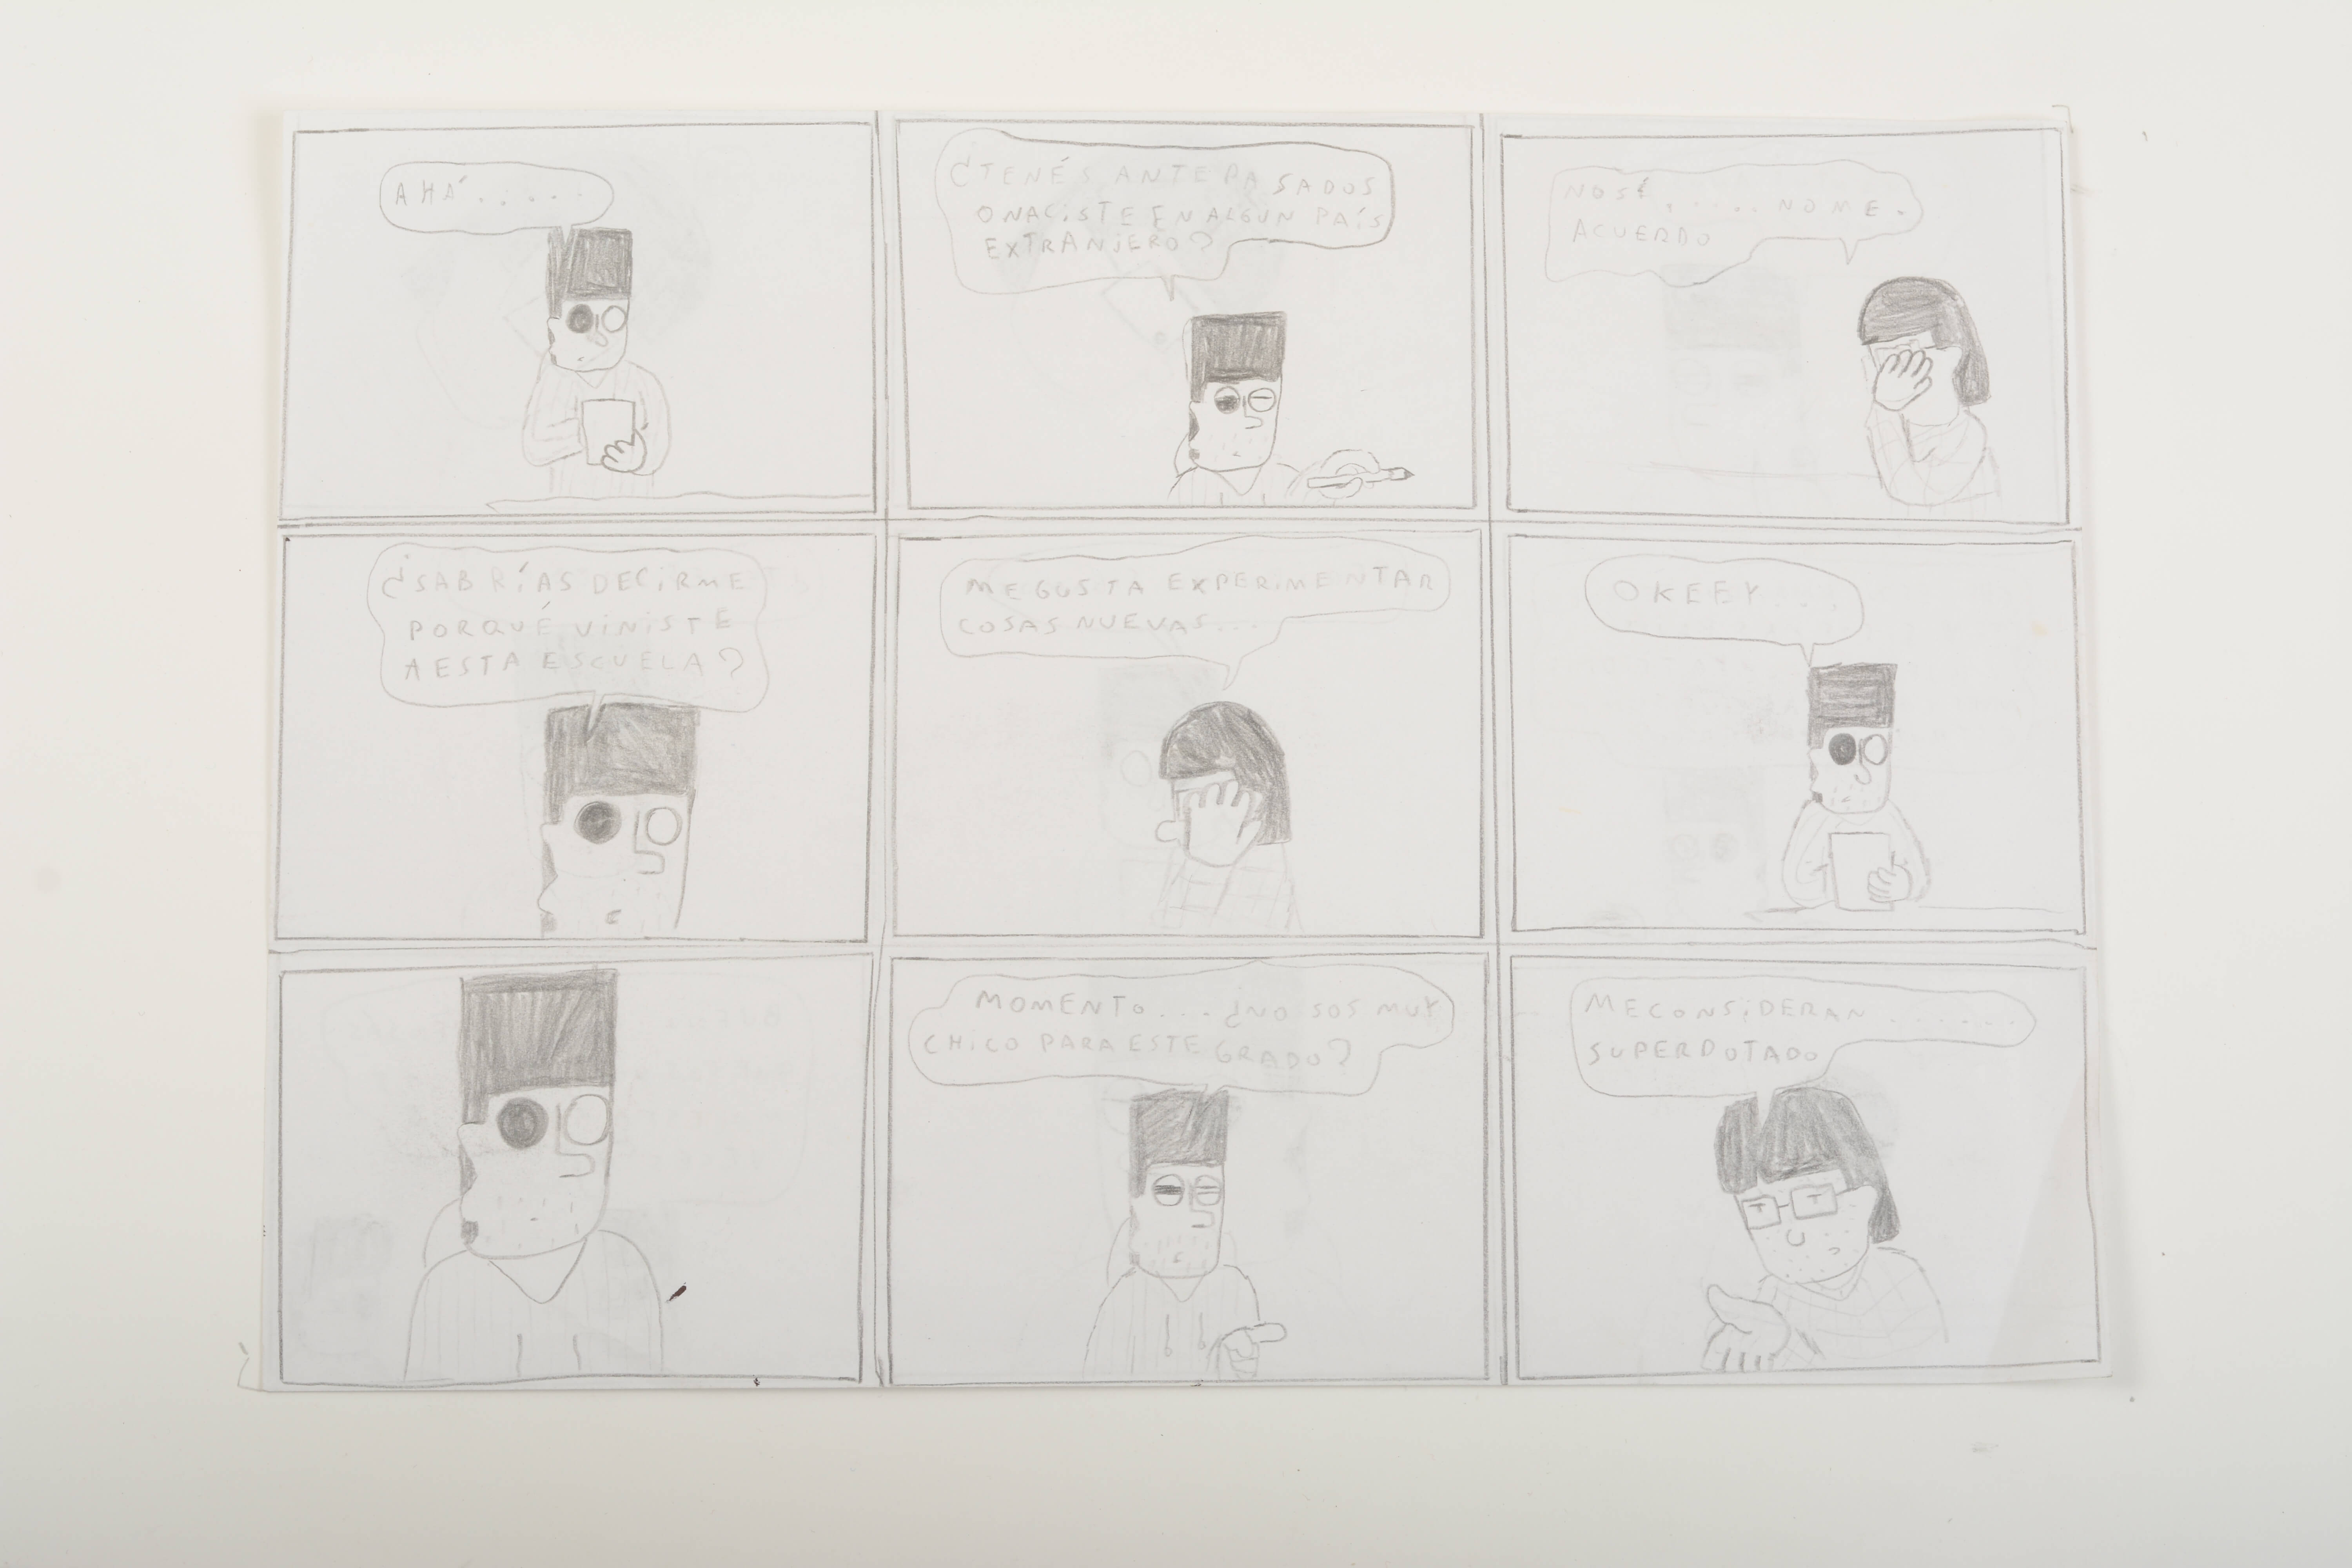 AHÁ......
¿TENÉS ANTEPASADOS
O NACISTE EN ALGUN PAÍS
EXTRANJERO?
NO SÉ,.... NO ME.
ACUERDO
¿SABRÍAS DECIRME
PORQUÉ VINISTE
A ESTA ESCUELA?
ME GUSTA EXPERIMENTAR
COSAS NUEVAS...
OKEEY...
MOMENTO... ¿NO SOS MUY
CHICO PARA ESTE GRADO?
ME CONSIDERAN ......
SUPERDOTADO